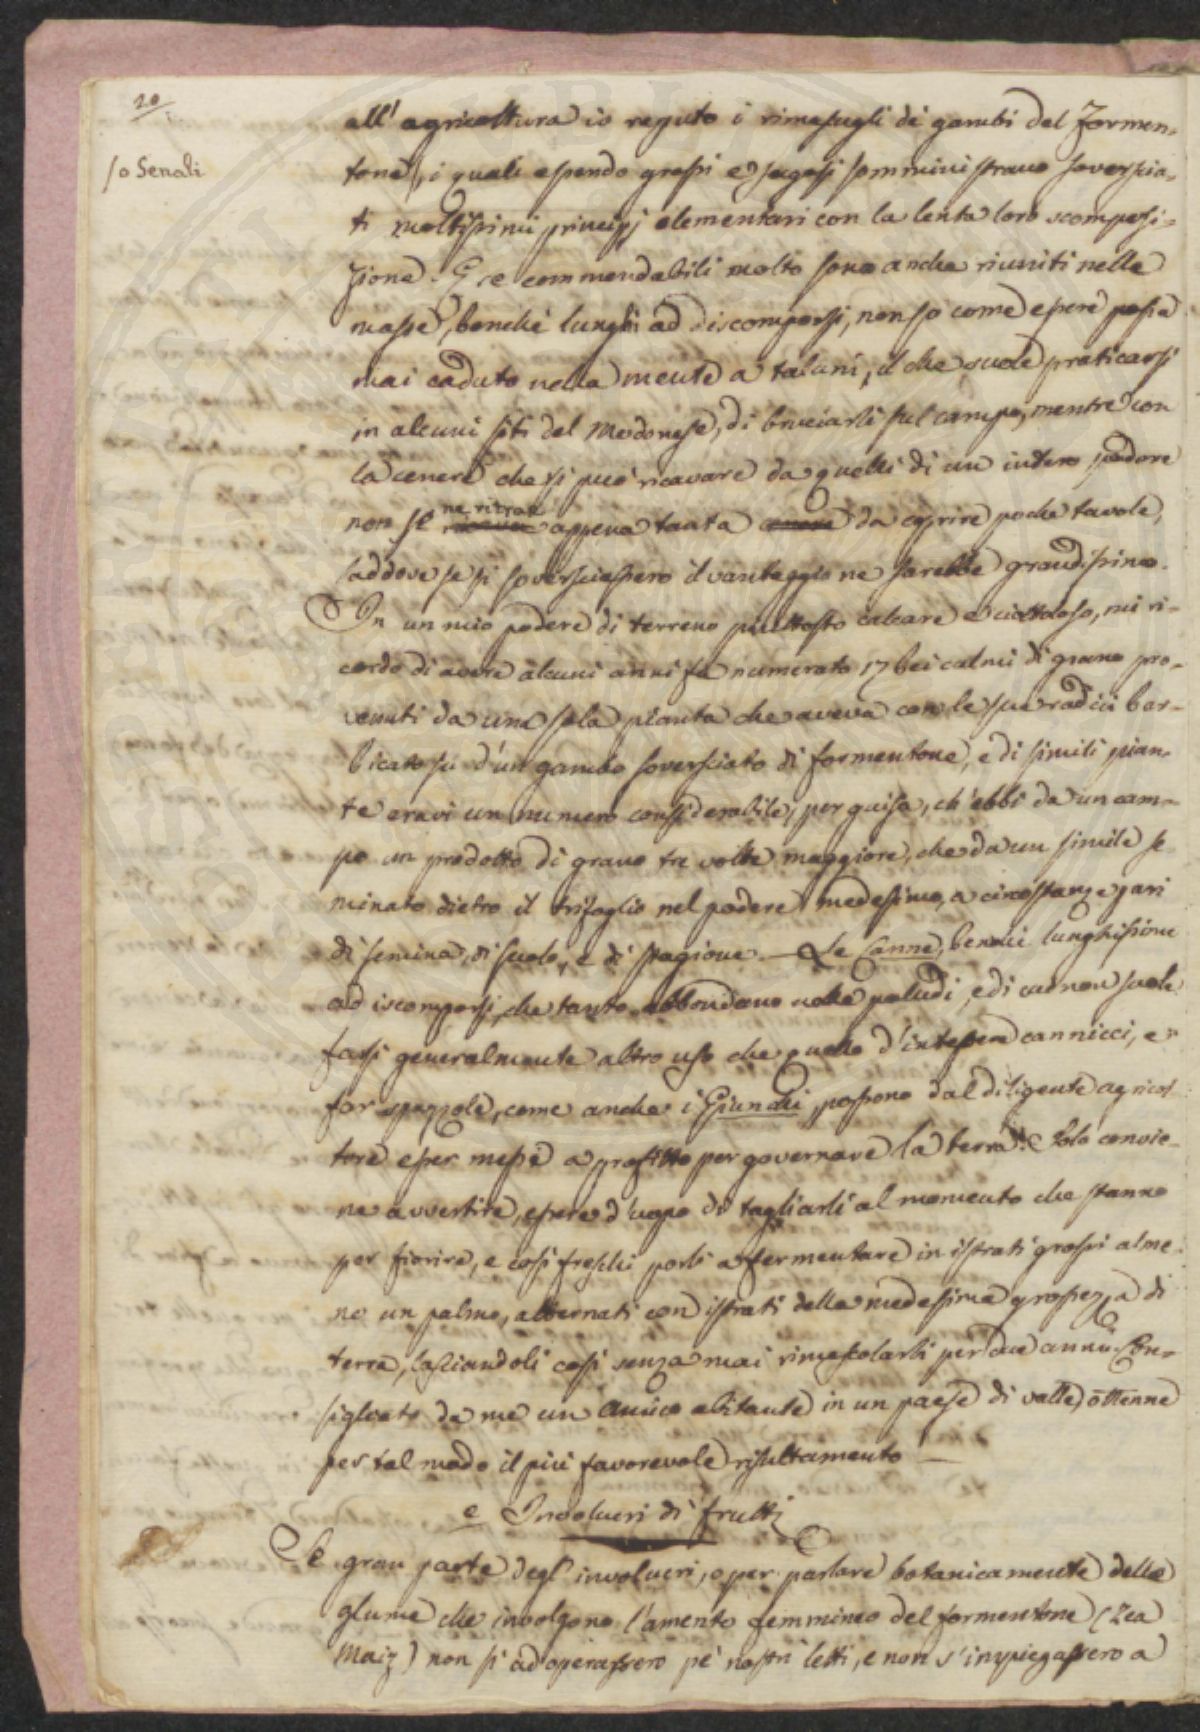 20
so Senali
all' agricoltura io reputo i rimasugli di gambi del formen-
tone, i quali essendo grossi e sugosi somministrano soverscia-
ti moltissimi principj elementari con la lenta loro scomposi-
zione. E se commendabili molto sono anche riuniti nelle
masse, benchè lunghi ad discomporsi, non so come essere possa
mai caduto nella mente a taluni, il che suole praticarsi
in alcuni siti del Modonese, di bruciarli sul campo, mentre con
la cenere che si può ricavare da quelli di un intero podere
non se ne ritrae appena tanta cenere da coprire poche tavole,
laddove se si soversciassero il vantaggio ne sarebbe grandissimo.
In un mio podere di terreno piuttosto calcare e ciottoloso, mi ri-
cordo di avere alcuni anni fa numerato 17 bei calmi di grano pro-
venuti da una sola pianta che aveva con le sue radici bar-
bicato su d'un gambo soversciato di formentone, e di simili pian-
te eravi un numero considerabile, per guisa, ch'ebbi da un cam-
po un prodotto di grano tre volte maggiore, che da un simile se
minato dietro il trifoglio nel podere medesimo, a circostanze pari
di semina, di suolo, e di stagione. — Le Canne, benchè lunghissime
ad iscomporsi, che tanto abbondano nelle paludi, e di cui non suole
farsi generalmente altro uso che quello d'intessere cannicci, e
far spazzole, come anche i Giunchi possono dal diligente agricol
tore esser messe a profitto per governare la terra. Solo convie-
ne avvertire, essere d'uopo di tagliarli al momento che stanno
per fiorire, e così freschi porli a fermentare in istrati grossi alme
no un palmo, alternati con istrati della medesima grossezza di
terra, lasciandoli così senza mai rimescolarli per due anni. Con-
sigliato da me un amico abitante in un paese di valle, ottenne
per tal modo il più favorevole risultamento —
e Involucri di frutti
Se gran parte degl' involucri, o per parlare botanicamente delle
glume che involgono l'amento femmineo del formentone (Zea
Maiz) non si adoperassero pe' nostri letti, e non s'impiegassero a